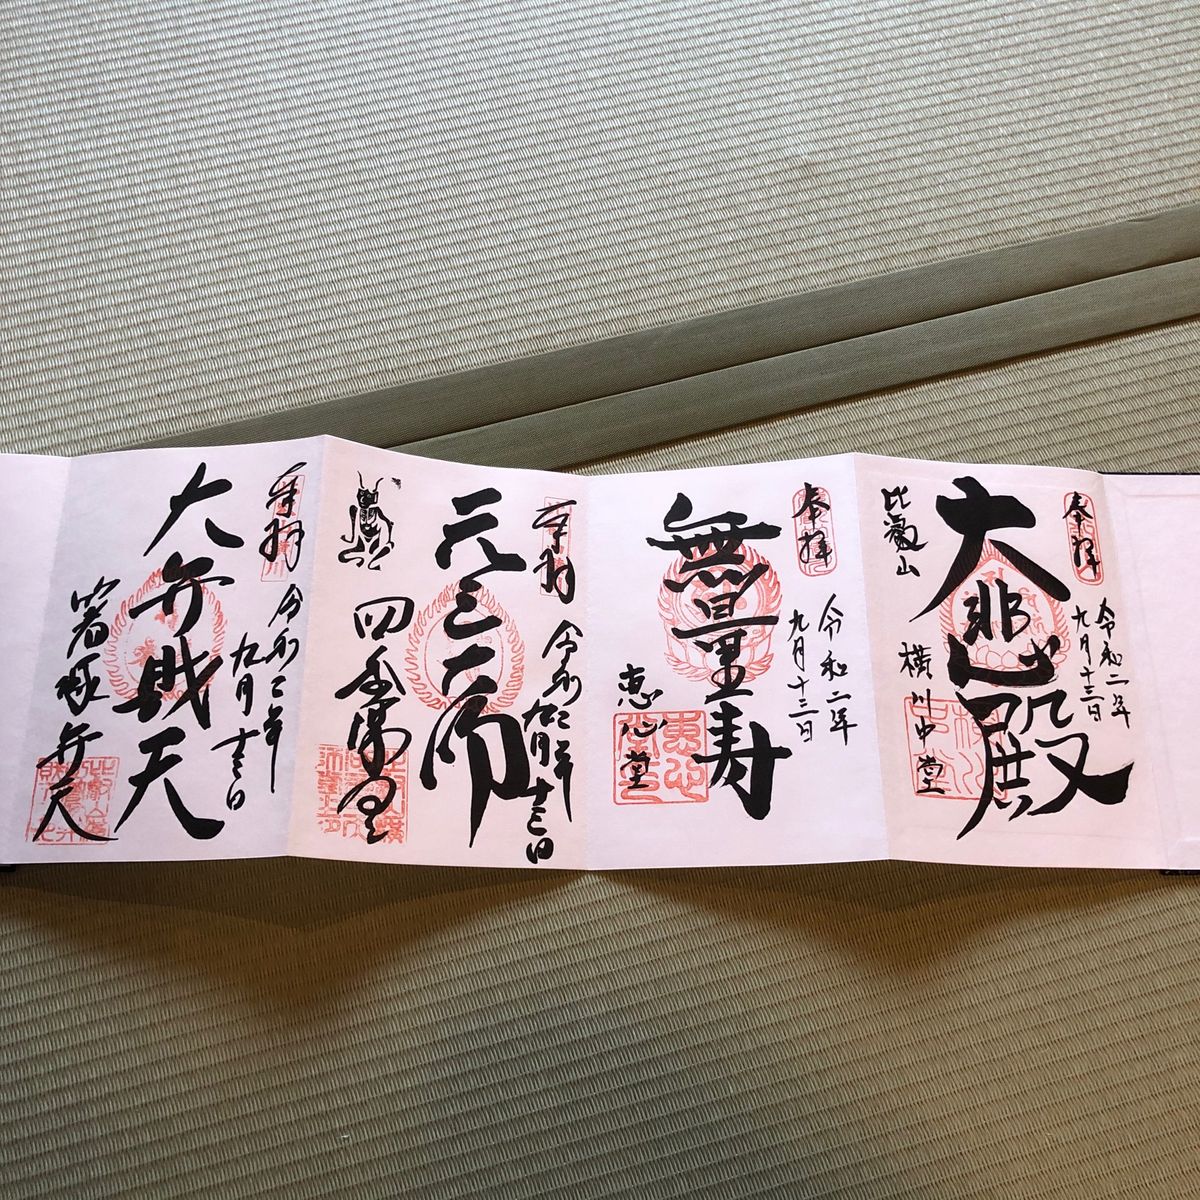 奉拝
令和二年
九月十三日
大悲殿
比叡山
横川中堂
奉拝
令和二年
九月十三日
無量寿
恵心堂
奉拝
令和二年
九月十三日
元三大師
四季講堂
奉拝
令和二年
九月十三日
大弁財天
箸塚弁天